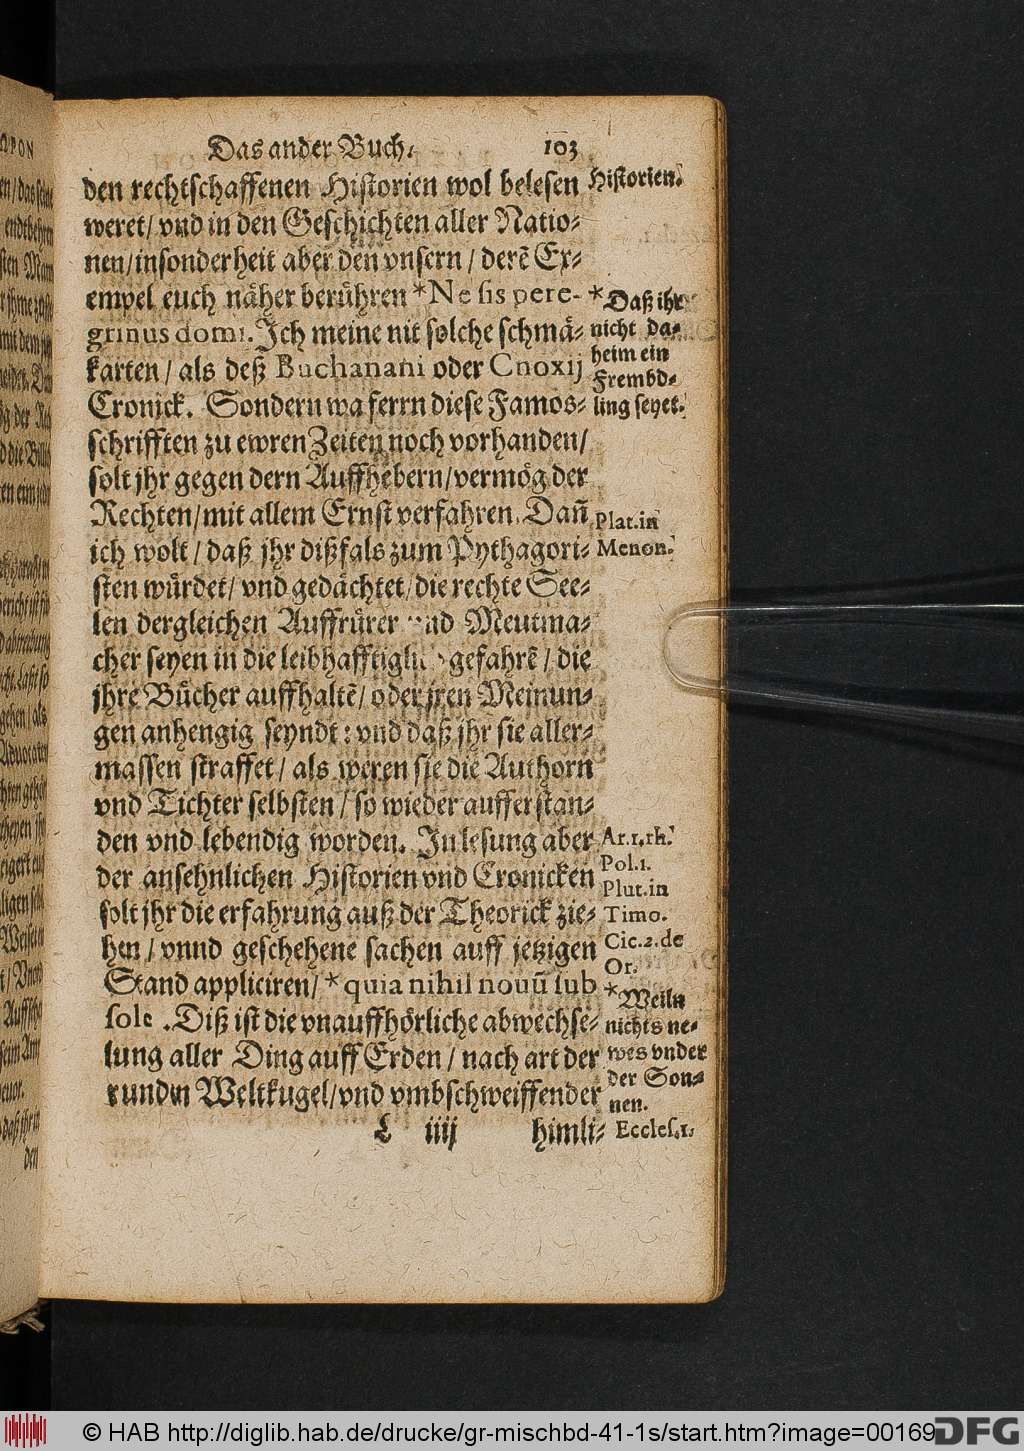 Das ander Buch. 103
den rechtschaffenen Historien wol belesen
weret/ vnd in den Geschichten aller Natio-
nen/ insonderheit aber den vnsern / derē Ex-
empel euch näher berühren *Ne sis pere-
grinus domi. Ich meine nit solche schmä-
karten/ als deß Buchanani oder Cnoxij
Cronick. Sondern wa ferrn diese Famos-
schrifften zu ewren Zeiten noch vorhanden/
solt jhr gegen dern Auffhebern/ vermög der
Rechten/ mit allem Ernst verfahren. Dañ
ich wolt/ daß jhr dißfals zum Pythagori-
sten würdet/ vnd gedächtet/ die rechte See-
len dergleichen Auffrürer vnd Meutma-
cher seyen in die gefahrē/ die
jhre Bücher auffhaltē/ oder jren Meinun-
gen anhengig seyndt: vnd daß jhr sie aller-
massen straffet/ als weren sie die Authorn
vnd Tichter selbsten/ so wieder aufferstan-
den vnd lebendig worden. In lesung aber
der ansehnlichen Historien vnd Cronicken
solt jhr die erfahrung auß der Theorick zie-
hen/ vnnd geschehene sachen auff jetzigen
Stand appliciren/ *quia nihil nouū sub
sole. Diß ist die vnauffhörliche abwechse-
lung aller Ding auff Erden/ nach art der
runden Weltkugel/ vnd vmbschweiffender
L iiij himli-
Historien.
*Daß ihr
nicht da-
heim ein
Frembd-
ling seyet.
Plat.in
Menon.
Ar.1.rh.
Pol.1.
Plut.in
Timo.
Cic.2.de
Or.
*Weiln
nichts ne-
wes vnder
der Son-
nen.
Eccles.1.
© HAB http://diglib.hab.de/drucke/gr-mischbd-41-1s/start.htm?image=00169
DFG